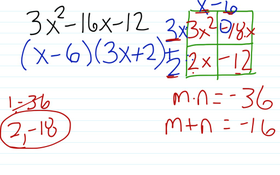 3x²-16x-12
(x-6)(3x+2)
x -6
3x 3x² -18x
+2 2x -12
1,-36
2,-18
m·n = -36
m+n = -16